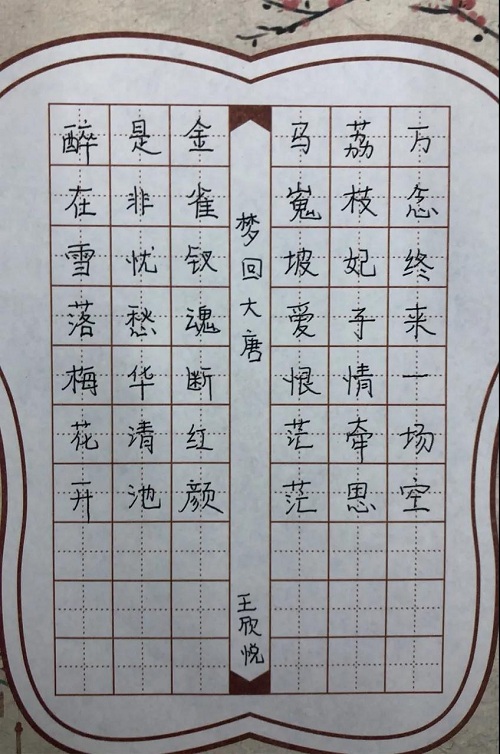 醉在雪落梅花开
是非忧愁华清池
金雀钗魂断红颜
梦回大唐
王欣悦
马嵬坡爱恨茫茫
荔枝妃子情牵思
万念终来一场空